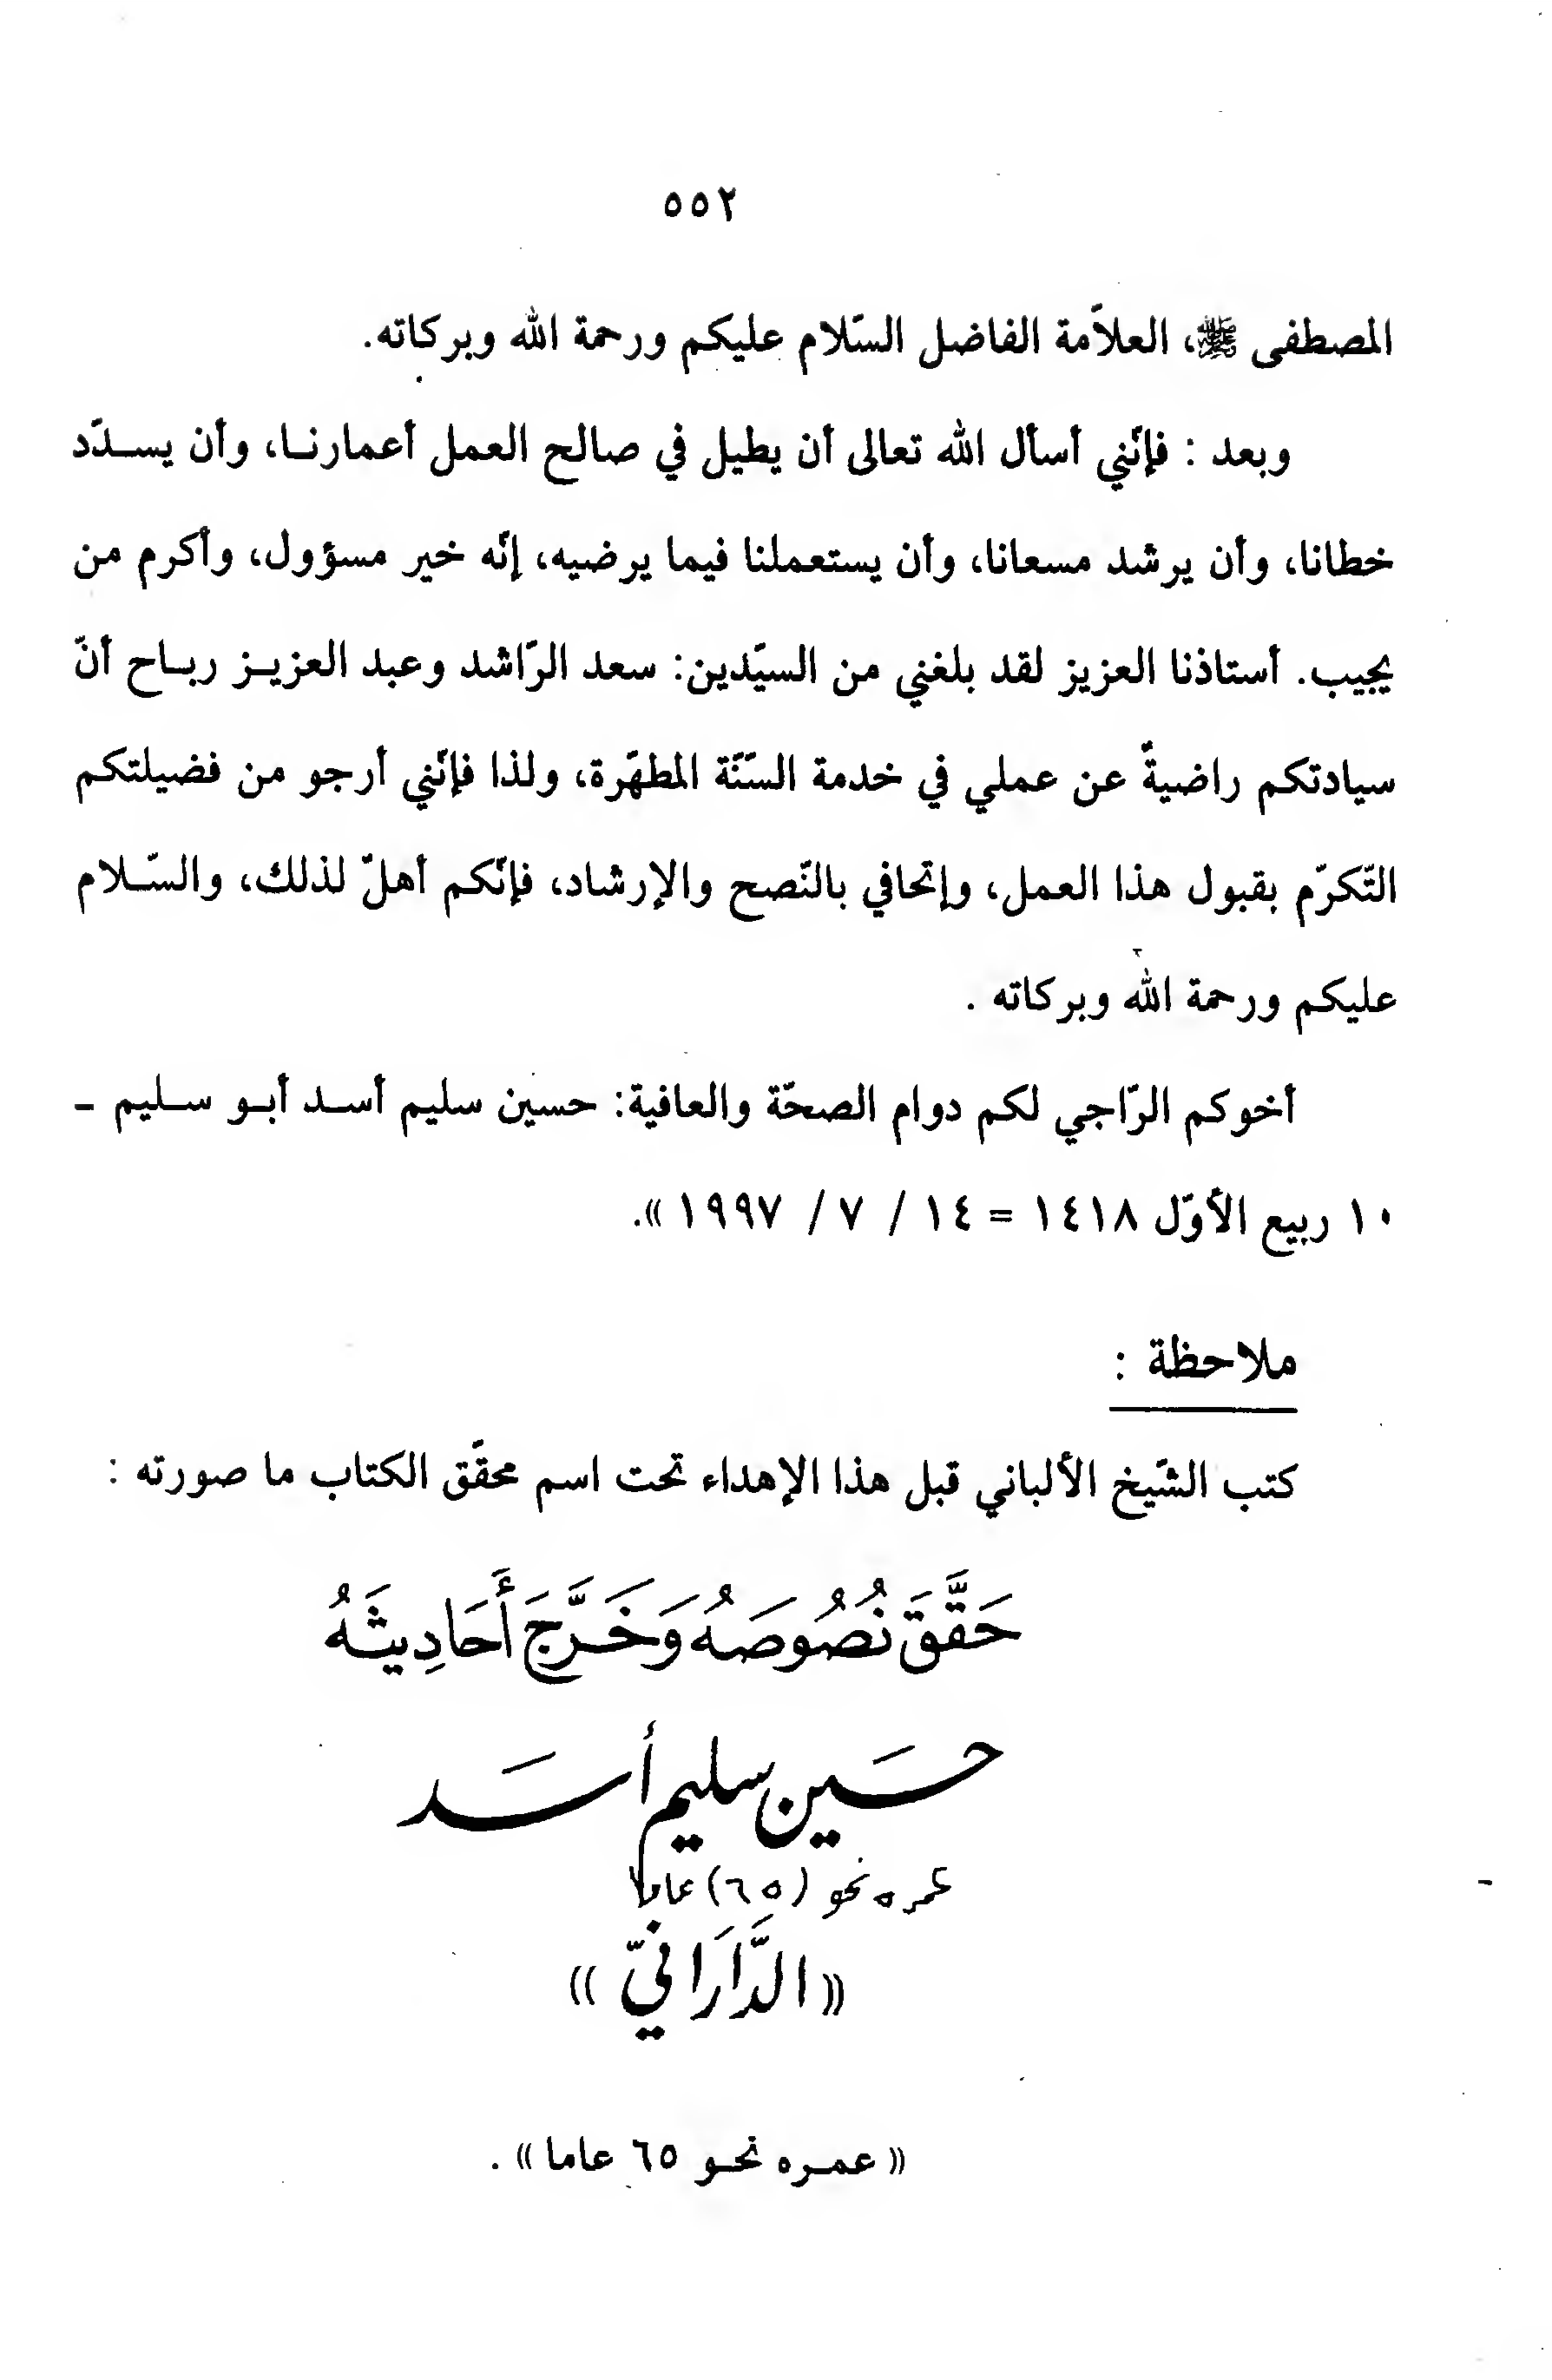 ٥٥٢
المصطفى ﷺ، العلاّمة الفاضل السّلام عليكم ورحمة الله وبركاته.
وبعد : فإنّني أسأل الله تعالى أن يطيل في صالح العمل أعمارنـا، وأن يســدّد
خطانا، وأن يرشد مسعانا، وأن يستعملنا فيما يرضيه، إنّه خير مسؤول، وأكرم من
يجيب. أستاذنا العزيز لقد بلغني من السيّدين: سعد الرّاشد وعبد العزيـز ربـاح أنّ
سيادتكم راضيةٌ عن عملي في خدمة السّنّة المطهّرة، ولذا فإنّني أرجو من فضيلتكم
التّكرّم بقبول هذا العمل، وإتحافي بالنّصح والإرشاد، فإنّكم أهلّ لذلك، والسّـلام
عليكم ورحمة الله وبركاته .
أخوكم الرّاجي لكم دوام الصحّة والعافية: حسين سليم أسـد أبـو سـليم -
١٠ ربيع الأوّل ١٤١٨ = ١٤ / ٧ / ١٩٩٧ ».
ملاحظة :
كتب الشّيخ الألباني قبل هذا الإهداء تحت اسم محقّق الكتاب ما صورته :
حَقَّقَ نُصُوصَهُ وَخَرَّجَ أَحَادِيثَهُ
حسَين سليم أسَد
عمره نحو (٦٥) عاما
« الدَّارَانيّ »
« عمـره نحـو ٦٥ عاما » .